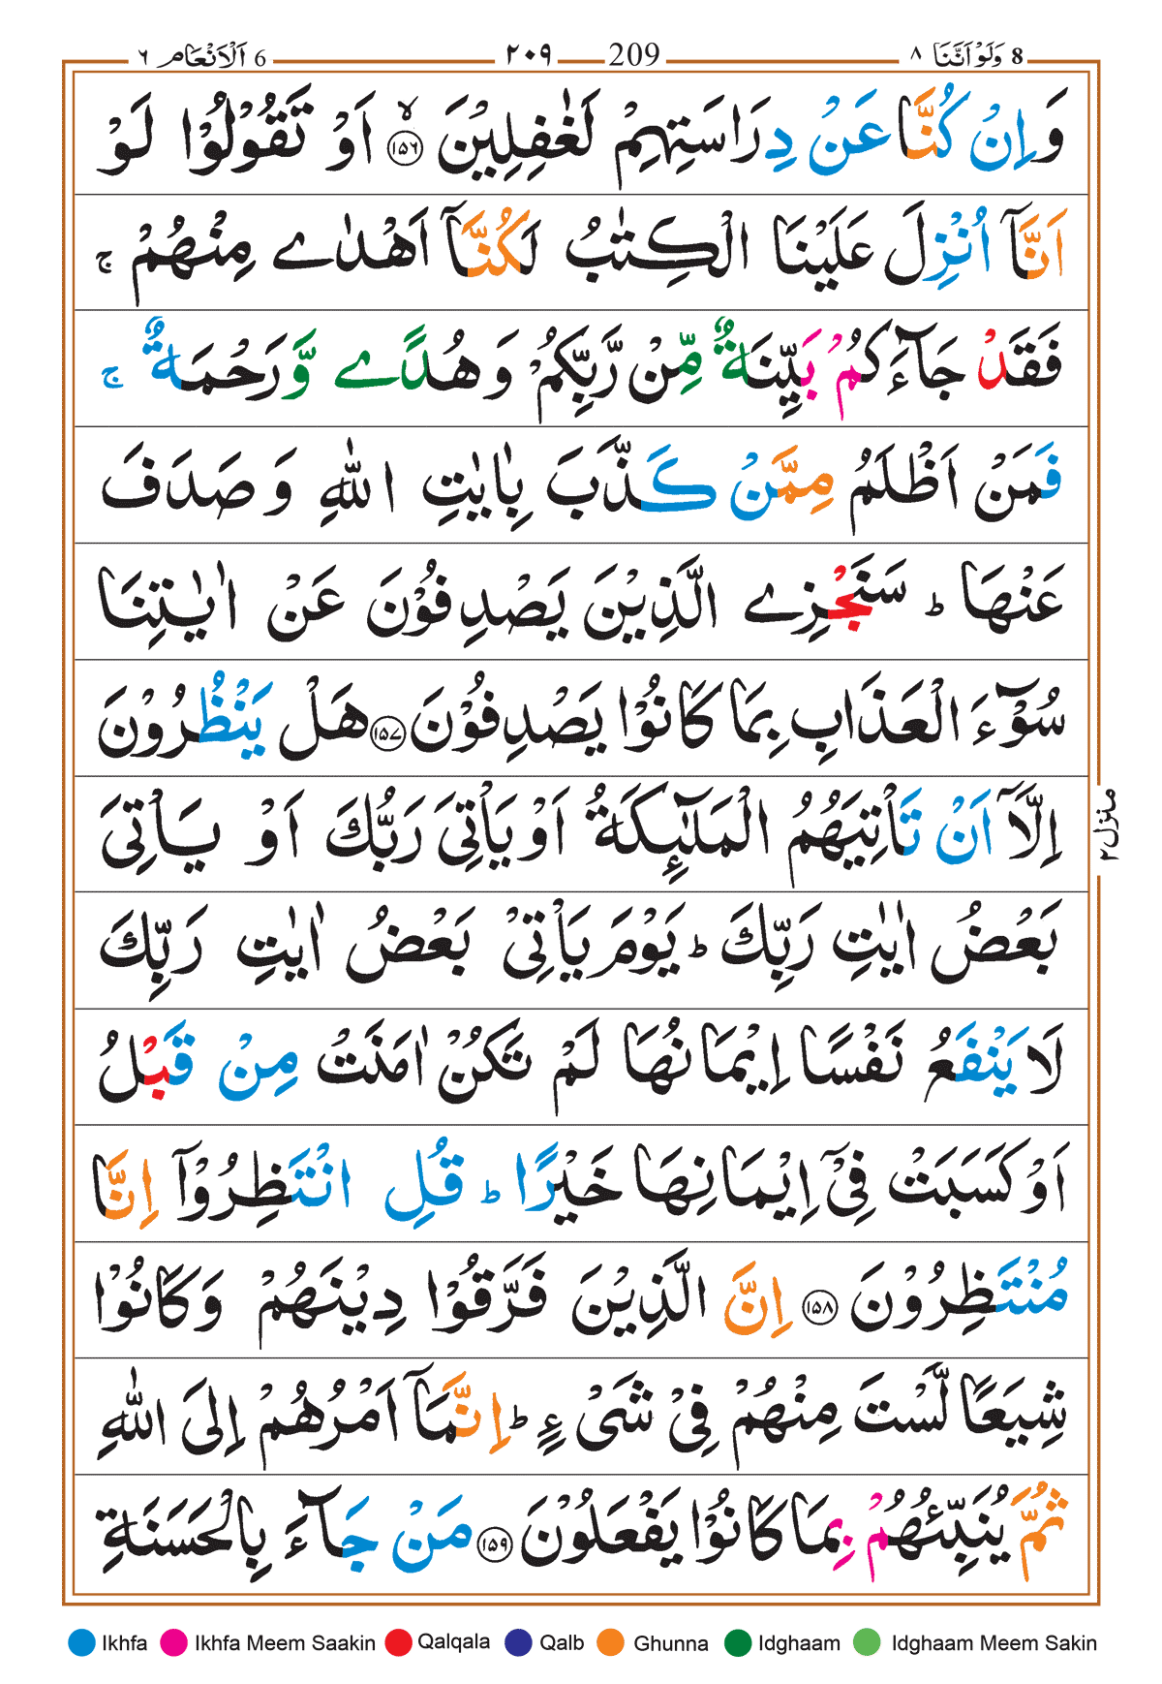 ٦ اَلْاَنْعَام 6 ٢٠٩ 209 ٨ وَلَوْ اَنَّنَا 8
وَاِنْ كُنَّا عَنْ دِرَاسَتِهِمْ لَغٰفِلِيْنَ ۙ﴿١٥٦﴾ اَوْ تَقُوْلُوْا لَوْ
اَنَّاۤ اُنْزِلَ عَلَيْنَا الْكِتٰبُ لَكُنَّاۤ اَهْدٰے مِنْهُمْ ۚ
فَقَدْ جَآءَكُمْ بَيِّنَةٌ مِّنْ رَّبِّكُمْ وَهُدًے وَّرَحْمَةٌ ۚ
فَمَنْ اَظْلَمُ مِمَّنْ كَذَّبَ بِاٰيٰتِ اللّٰهِ وَصَدَفَ
عَنْهَا ؕ سَنَجْزِے الَّذِيْنَ يَصْدِفُوْنَ عَنْ اٰيٰتِنَا
سُوْٓءَ الْعَذَابِ بِمَا كَانُوْا يَصْدِفُوْنَ ﴿١٥٧﴾ هَلْ يَنْظُرُوْنَ
اِلَّاۤ اَنْ تَاْتِيَهُمُ الْمَلٰٓئِكَةُ اَوْ يَاْتِيَ رَبُّكَ اَوْ يَاْتِيَ
بَعْضُ اٰيٰتِ رَبِّكَ ؕ يَوْمَ يَاْتِيْ بَعْضُ اٰيٰتِ رَبِّكَ
لَا يَنْفَعُ نَفْسًا اِيْمَانُهَا لَمْ تَكُنْ اٰمَنَتْ مِنْ قَبْلُ
اَوْ كَسَبَتْ فِيْۤ اِيْمَانِهَا خَيْرًا ؕ قُلِ انْتَظِرُوْۤا اِنَّا
مُنْتَظِرُوْنَ ﴿١٥٨﴾ اِنَّ الَّذِيْنَ فَرَّقُوْا دِيْنَهُمْ وَكَانُوْا
شِيَعًا لَّسْتَ مِنْهُمْ فِيْ شَيْءٍ ؕ اِنَّمَاۤ اَمْرُهُمْ اِلَى اللّٰهِ
ثُمَّ يُنَبِّئُهُمْ بِمَا كَانُوْا يَفْعَلُوْنَ ﴿١٥٩﴾ مَنْ جَآءَ بِالْحَسَنَةِ
منزل ٢
Ikhfa Ikhfa Meem Saakin Qalqala Qalb Ghunna Idghaam Idghaam Meem Sakin